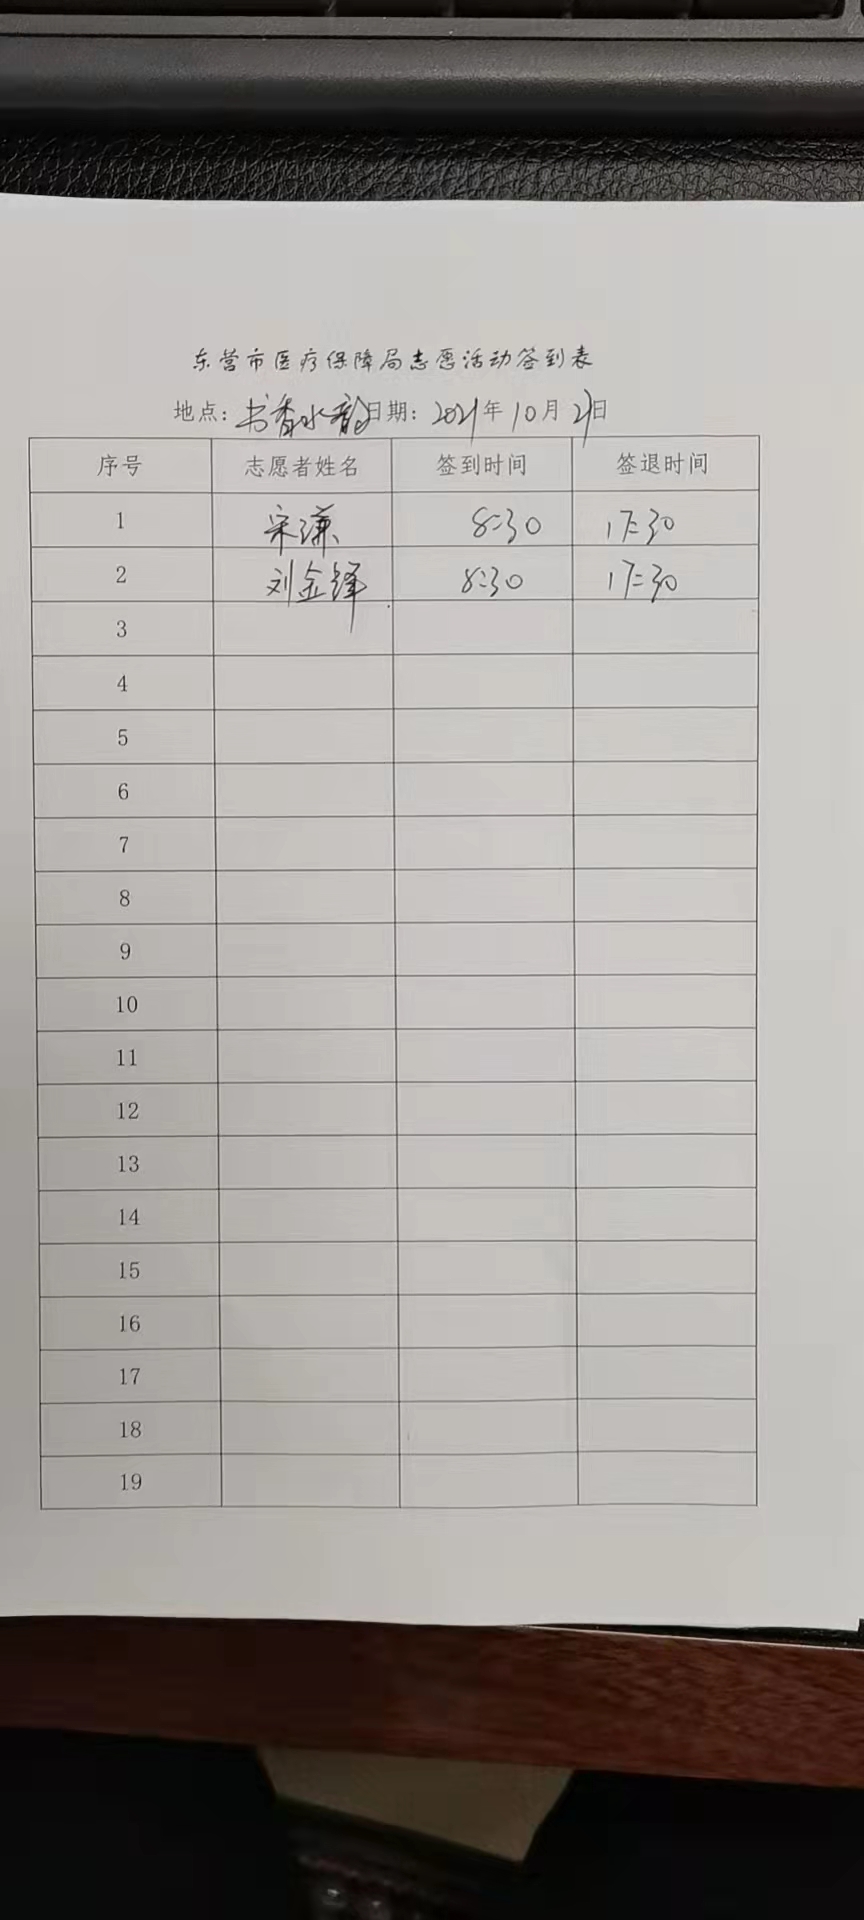 东营市医疗保障局志愿活动签到表
地点：书香水韵日期：2021年10月21日
序号 志愿者姓名 签到时间 签退时间
1 宋谦 8:30 17:30
2 刘金铎 8:30 17:30
3
4
5
6
7
8
9
10
11
12
13
14
15
16
17
18
19